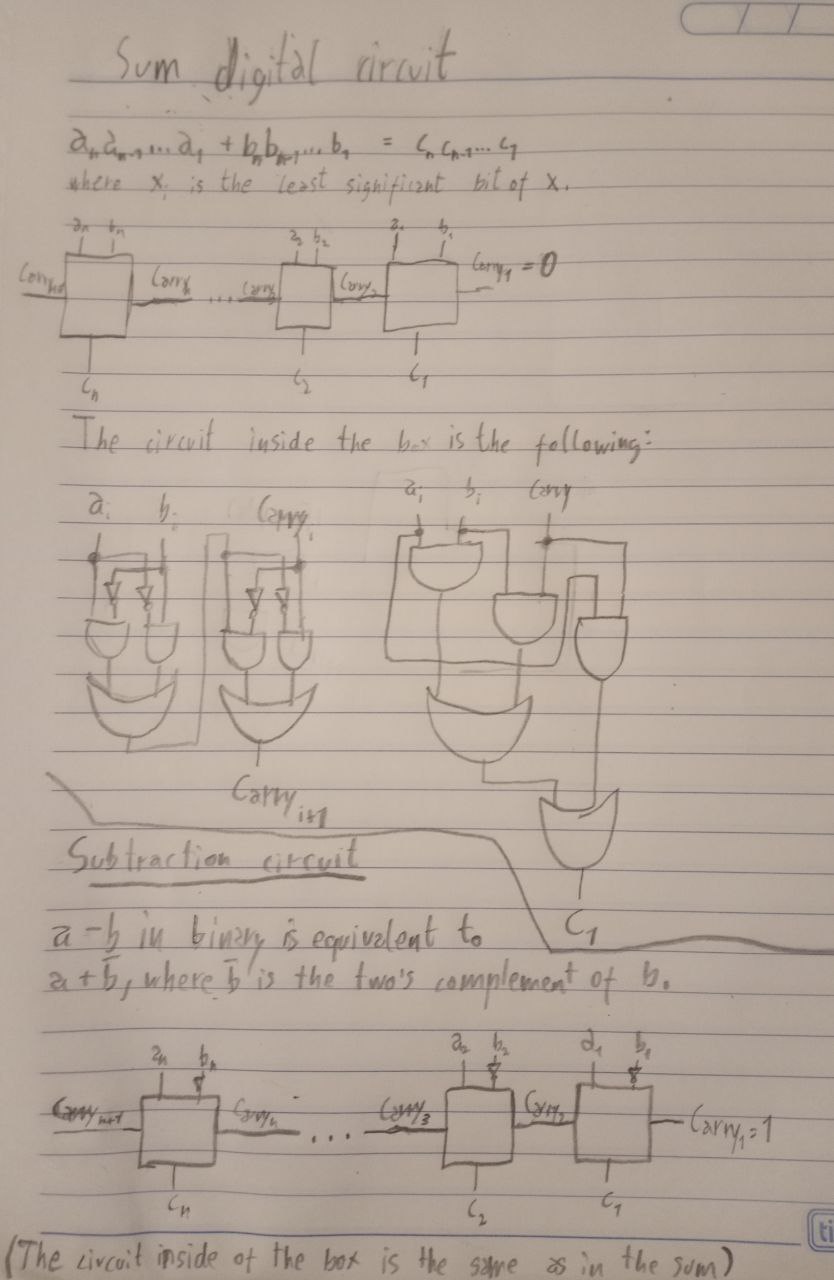 Sum digital circuit
aₙaₙ₋₁...a₁ + bₙbₙ₋₁...b₁ = cₙcₙ₋₁...c₁
where x₁ is the least significant bit of x.
aₙ bₙ a₂ b₂ a₁ b₁
Carryₙ₊₁ Carryₙ ... Carry₃ Carry₂ Carry₁ = 0
Cₙ C₂ C₁
The circuit inside the box is the following:
aᵢ bᵢ Carryᵢ aᵢ bᵢ Carry
Carryᵢ₊₁
C₁
Subtraction circuit
a - b in binary is equivalent to
a + b̄, where b̄ is the two's complement of b.
aₙ bₙ a₂ b₂ a₁ b₁
Carryₙ₊₁ Carryₙ ... Carry₃ Carry₂ Carry₁=1
Cₙ C₂ C₁
ti
(The circuit inside of the box is the same as in the sum)